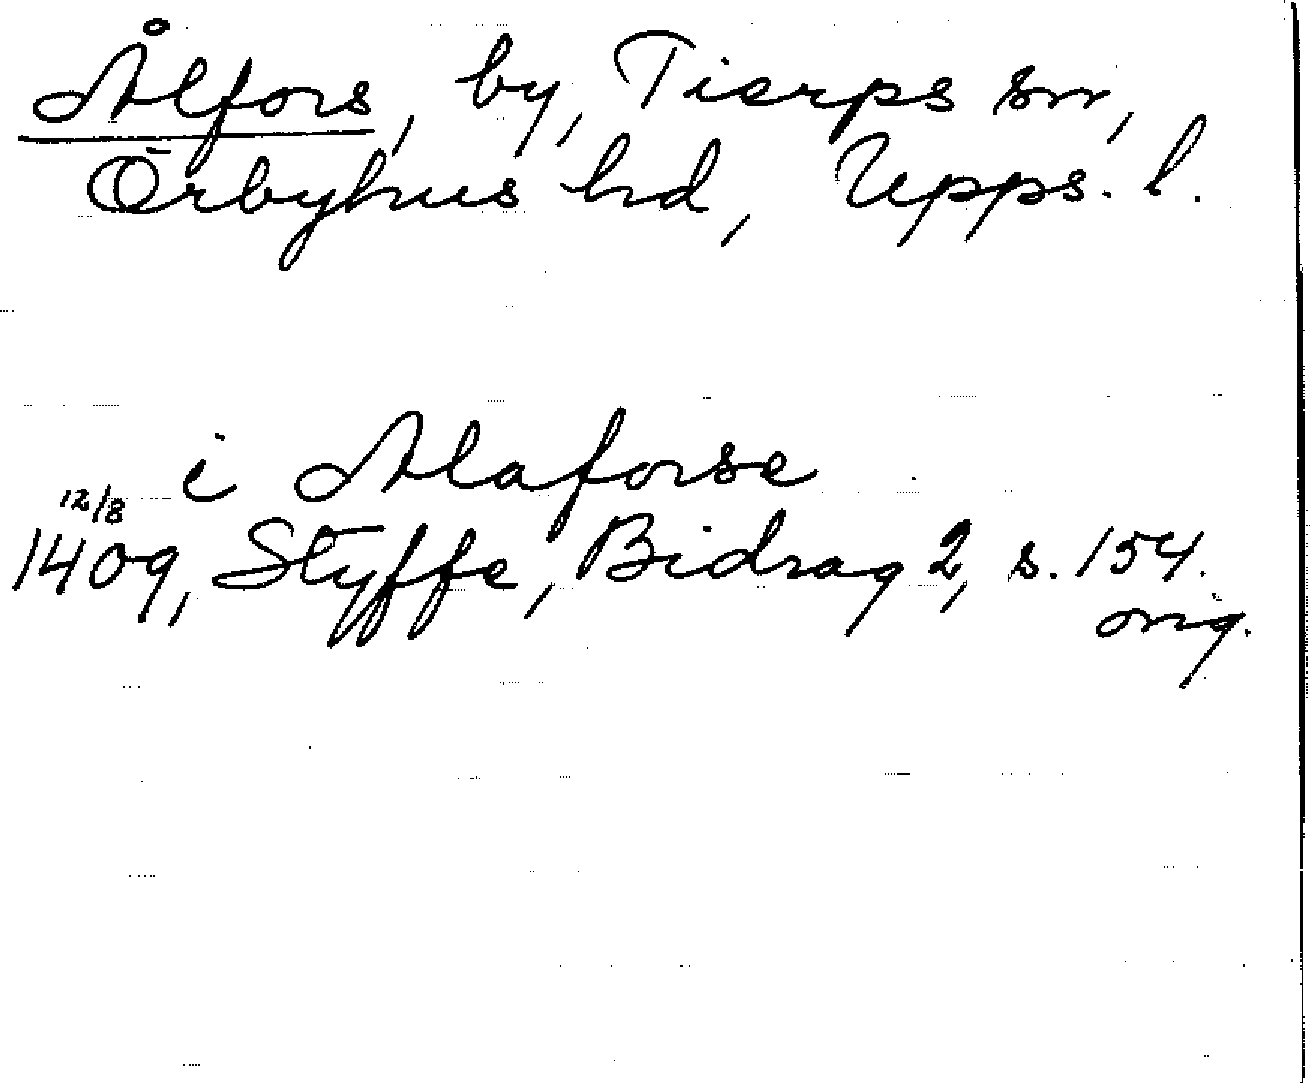 Ålfors, by, Tierps sn,
Örbyhus hd, Upps. l.
i Alaforse
12/8
1409, Styffe, Bidrag 2, s. 154.
orig.